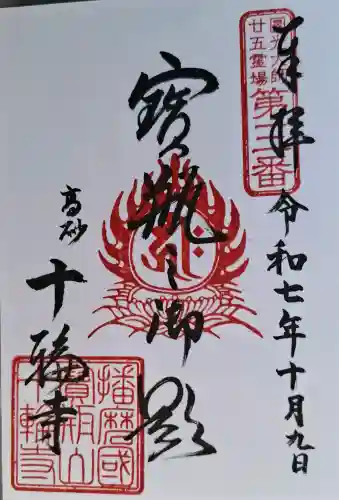 奉拝
圓光大師
廿五霊場
第三番
令和七年十月九日
寳瓶之御影
高砂
十輪寺
播磨國
寳瓶山
十輪寺